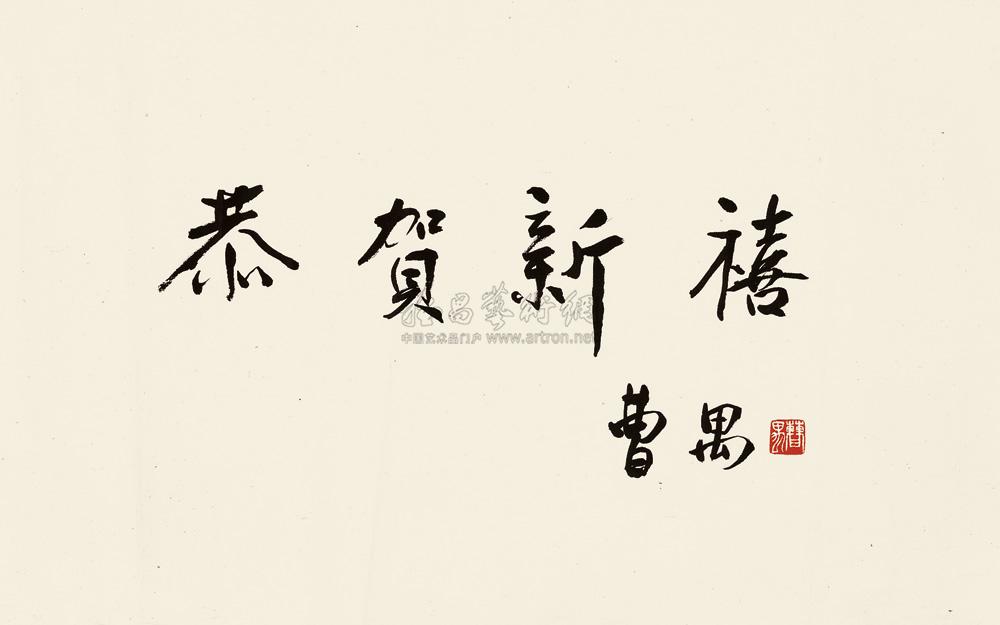 恭賀新禧
雅昌藝術網
中国艺术品门户 www.artron.net
曹禺
曹禺